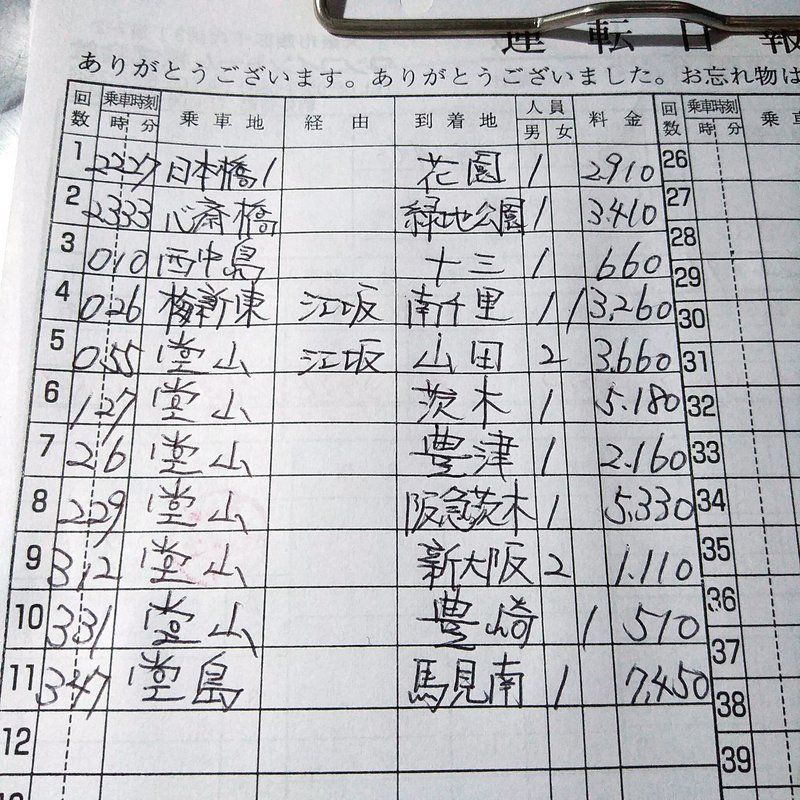 運転日報
ありがとうございます。ありがとうございました。お忘れ物は
回数 乗車時刻 時 分 乗車地 経由 到着地 人員 男 女 料金 回数 乗車時刻 時 分 乗車
1 22 27 日本橋1 花園 1 2910 26
2 23 33 心斎橋 緑地公園 1 3.410 27
3 0 10 西中島 十三 1 660 28
4 0 26 梅新東 江坂 南千里 1 1 3,260 29
5 0 55 堂山 江坂 山田 2 3.660 30
6 1 27 堂山 茨木 1 5.180 31
7 2 6 堂山 豊津 1 2.160 32
8 2 29 堂山 阪急茨木 1 5.330 33
9 3 12 堂山 新大阪 2 1.110 34
10 3 31 堂山 豊崎 1 510 35
11 3 47 堂島 馬見南 1 7.450 36
12 37
38
39